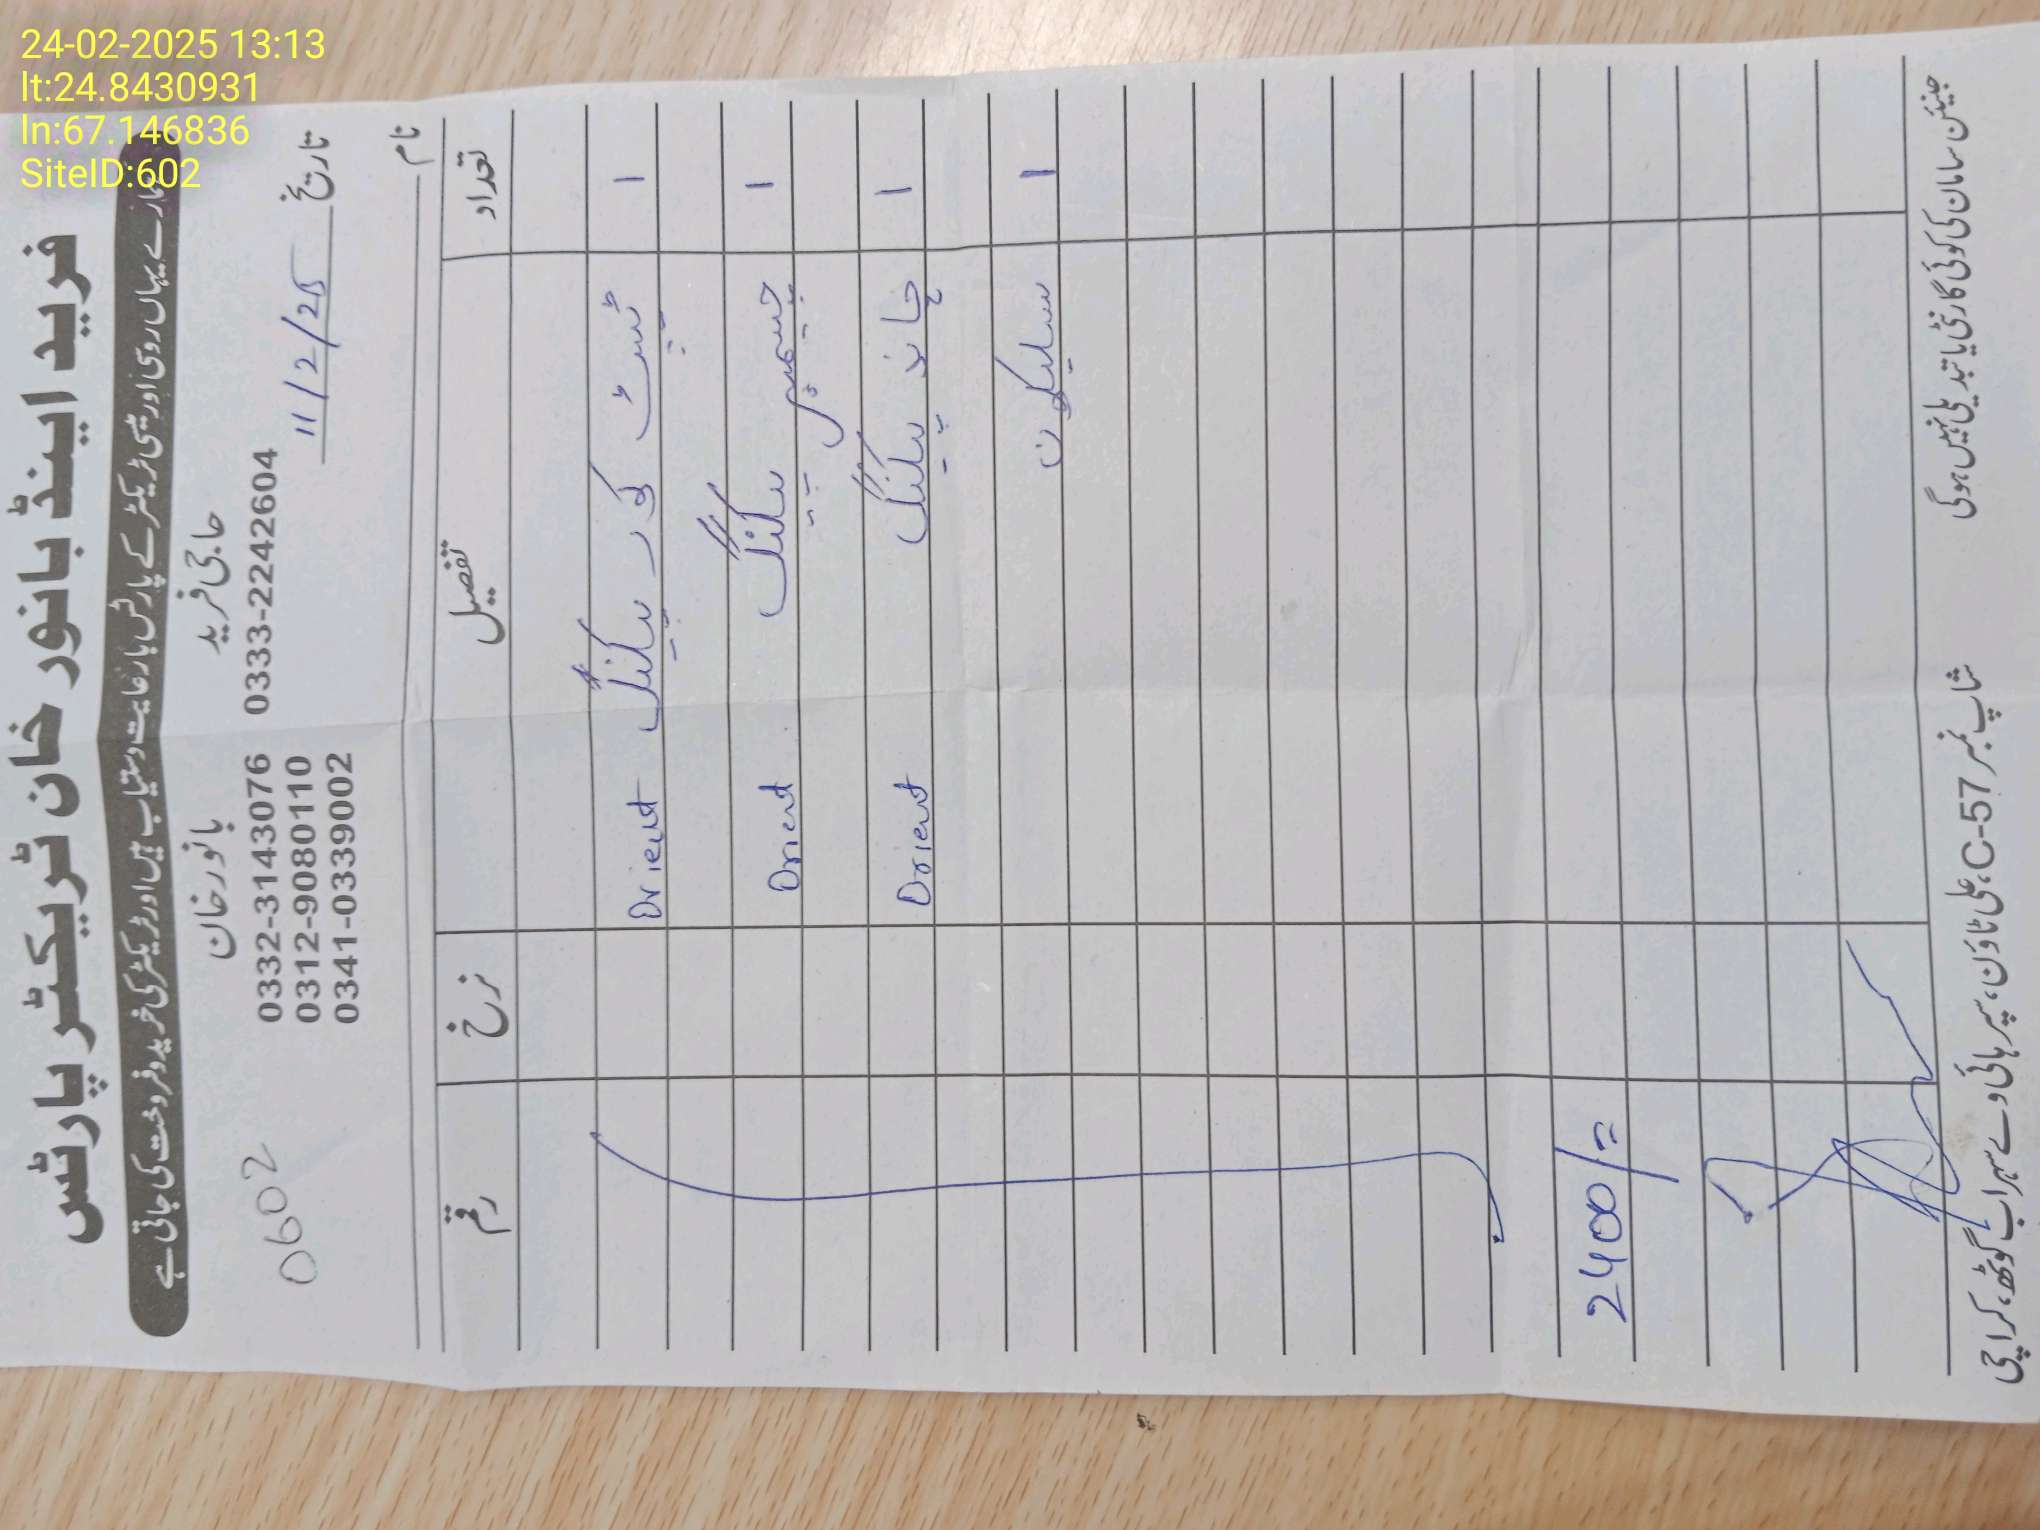 24-02-2025 13:13
lt:24.8430931
ln:67.146836
SiteID:602
فرید اینڈ بانور خان ٹریکٹر پارٹس
ہمارے یہاں روسی اور میسی ٹریکٹر کے پارٹس بارعایت دستیاب ہیں اور ٹریکٹر کی خرید و فروخت کی جاتی ہے
حاجی فرید بانور خان
0333-2242604 0332-3143076
0312-9080110
0341-0339002
0602
تاریخ 11/2/25
نام
تعداد تفصیل نرخ رقم
1 ٹیپٹ کور پیکنگ Orient
1 پیکنگ Orient
1 چاند پیکنگ Orient
1 سلیکون
2400/=
جینین سامان کی کوئی گارنٹی یا تبدیلی نہیں ہوگی
شاپ نمبر C-57، علی ٹاؤن، سپر ہائی وے سہراب گوٹھ، کراچی